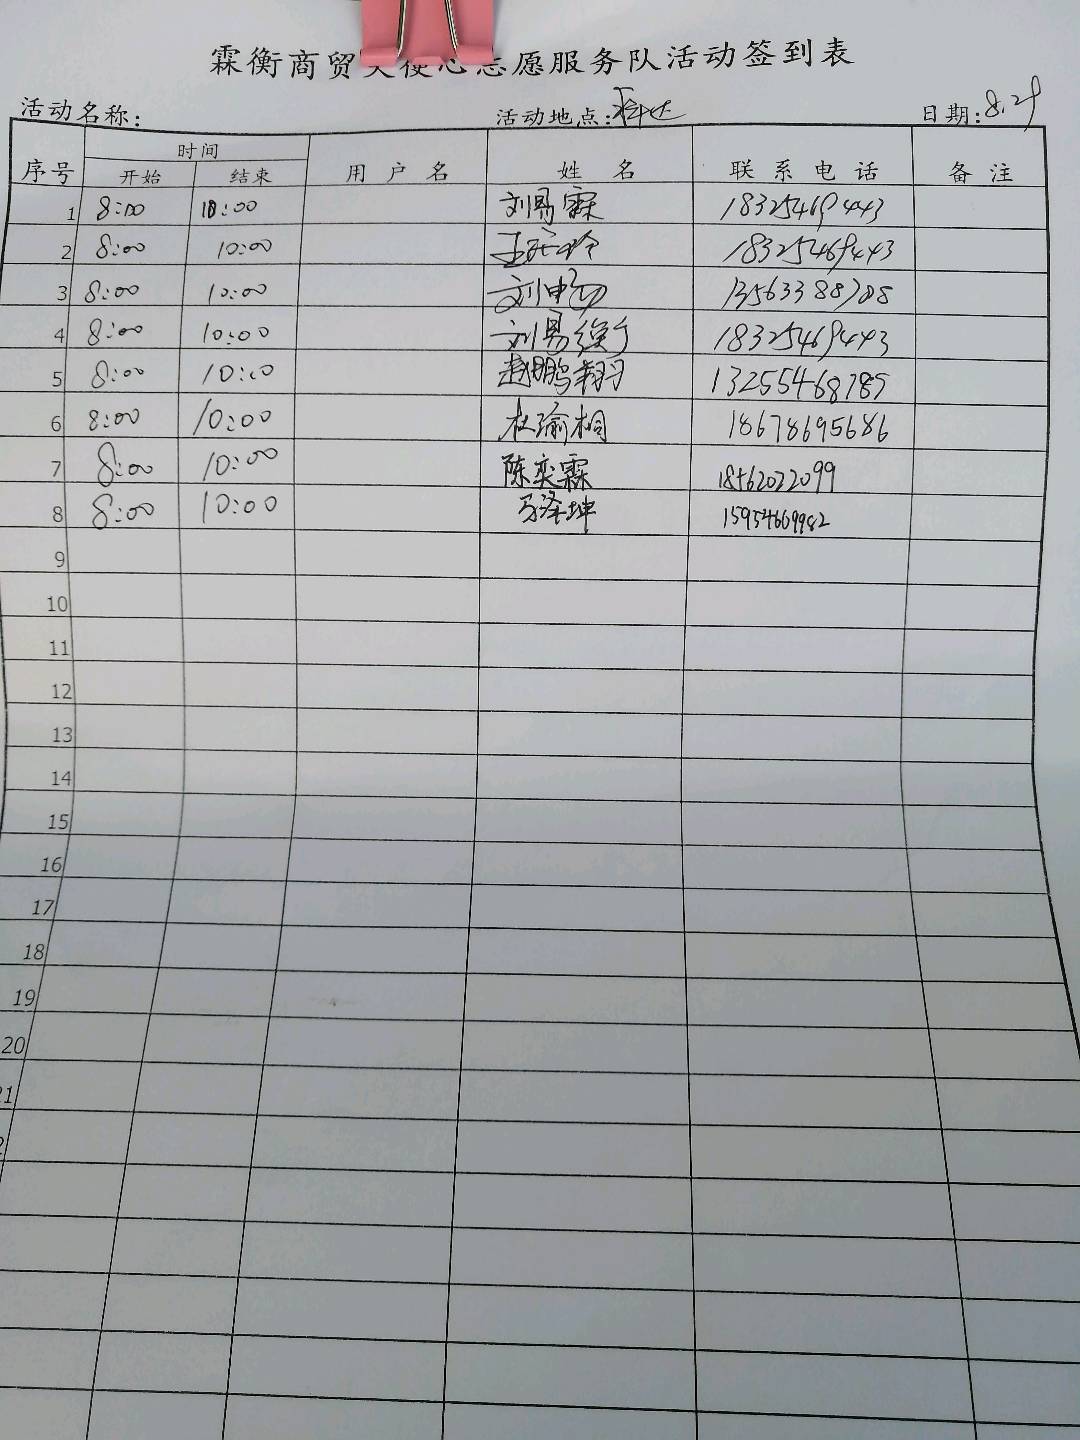 霖衡商贸天使心志愿服务队活动签到表
活动名称: 活动地点: 日期:8.29
序号 时间 用户名 姓名 联系电话 备注
开始 结束
1 8:00 10:00 刘易霖 18325469443
2 8:00 10:00 18325469443
3 8:00 10:00 刘申 13563388708
4 8:00 10:00 刘易衡 18325469443
5 8:00 10:00 赵鹏翔 13255468789
6 8:00 10:00 杜瑜桐 18678695686
7 8:00 10:00 陈奕霖 18562022099
8 8:00 10:00 马泽坤 15954669982
9
10
11
12
13
14
15
16
17
18
19
20
21